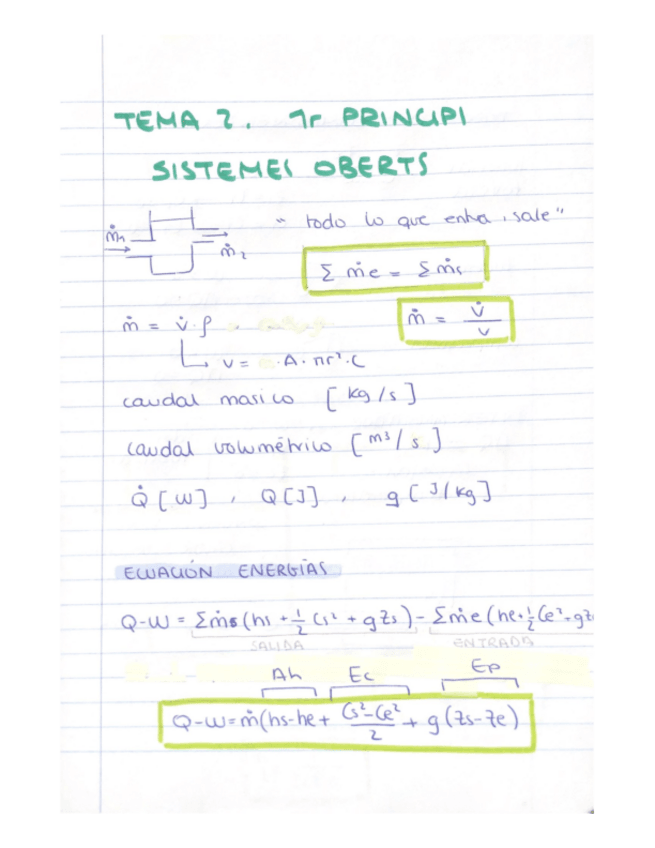 TEMA 2. 1r PRINCIPI
SISTEMES OBERTS
ṁ₁
ṁ₂
" todo lo que entra, sale"
Σ ṁe = Σ ṁs
ṁ = V̇ · ρ
ṁ = V̇ / v
V = A · πr² · C
caudal masico [kg/s]
caudal volumétrico [m³/s]
Q̇ [W] , Q [J] , q [J/kg]
ECUACIÓN ENERGÍAS
Q-W = Σṁs (hs + 1/2 Cs² + gZs) - Σṁe (he + 1/2 Ce² + gZ
SALIDA ENTRADA
Δh Ec Ep
Q-W = ṁ(hs-he + (Cs²-Ce²)/2 + g (Zs-Ze)